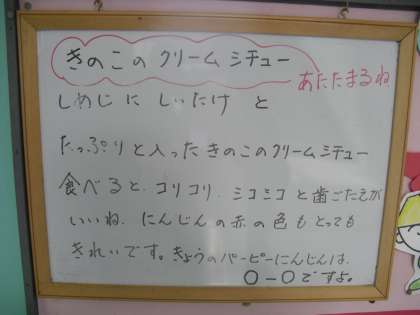 きのこの クリーム シチュー
あたたまるね
しめじに しいたけ と
たっぷりと入ったきのこのクリームシチュー
食べると、コリコリ、シコシコと歯ごたえが
いいね、にんじんの赤の色もとっても
きれいです。きょうのパーピーにんじんは、
〇ー〇ですよ。